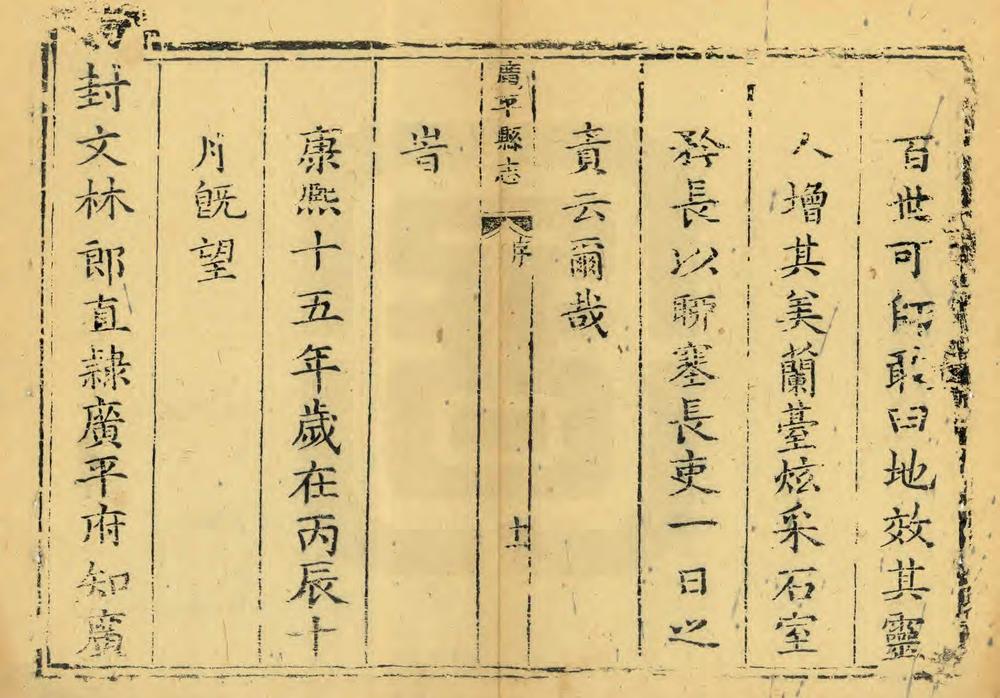 百世可師敢曰地效其靈
人增其美蘭臺炫采石室
矜長以聊塞長吏一日之
責云爾哉
廣平縣志 序 十二
旹
康熙十五年歲在丙辰十
月旣望
封文林郎直隸廣平府知廣